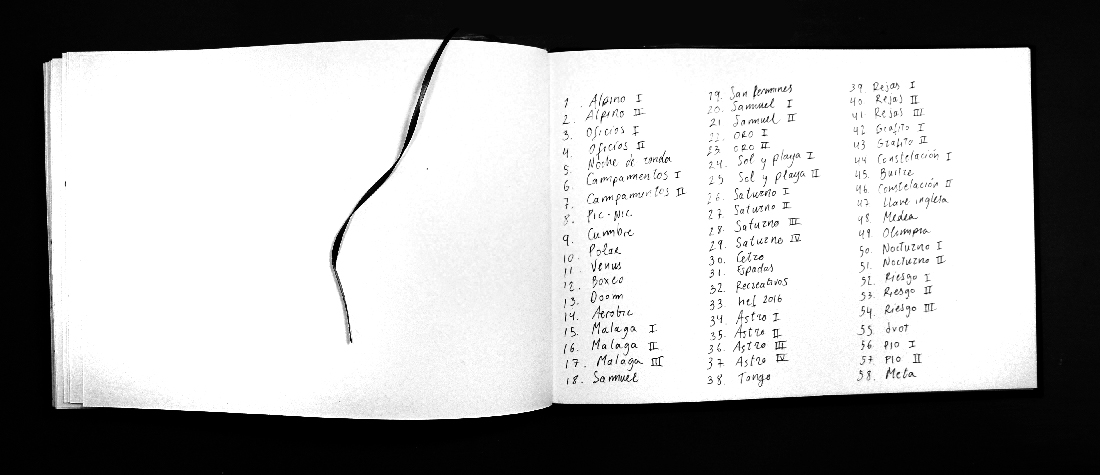 1. Alpino I
2. Alpino II
3. Oficios I
4. Oficios II
5. Noche de ronda
6. Campamentos I
7. Campamentos II
8. Pic-Nic
9. Cumbre
10. Polar
11. Venus
12. Boxeo
13. Doom
14. Aerobic
15. Malaga I
16. Malaga II
17. Malaga III
18. Samuel
19. San Fermines
20. Samuel I
21 Samuel II
22. ORO I
23. ORO II
24. Sol y playa I
25 Sol y playa II
26. Saturno I
27. Saturno II
28. Saturno III
29. Saturno IV
30. Cetro
31. Espadas
32. Recreativos
33. hel 2016
34 Astro I
35. Astro II
36. Astro III
37 Astro IV
38. Tongo
39. Rejas I
40. Rejas II
41. Rejas III
42 Grafito I
43 Grafito II
44 Constelación I
45. Buitre
46. Constelación II
47. Llave inglesa
48. Medea
49. Olimpia
50. Nocturno I
51. Nocturno II
52. Riesgo I
53. Riesgo II
54. Riesgo III
55.
56 PIO I
57. PIO II
58. Meta